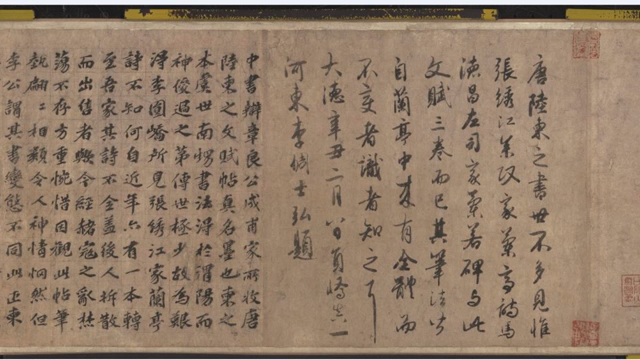 唐陸柬之書世不多見惟
張綉江參政家蘭亭詩馬
德昌左司家蘭若碑與此
文賦三卷而已其筆法皆
自蘭亭中來有全體而
不變者識者知之耳
大德辛丑二月八日員嶠真一
河東李倜士弘題
中書辯章良公成甫家所收唐
陸柬之文賦帖真名墨也柬之
本虞世南甥書法得於渭陽而
神俊過之第傳世極少故為艱
得李圓嶠所見張綉江家蘭亭
詩不知何自近年亦有一本轉
至吾家其詩不全蓋後人拆散
而出售者幾今經赭寇之亂焚
蕩不存方重惋惜因觀此帖筆
勢翩翩相類令人神情恫然但
李公謂其書變態不同此正柬